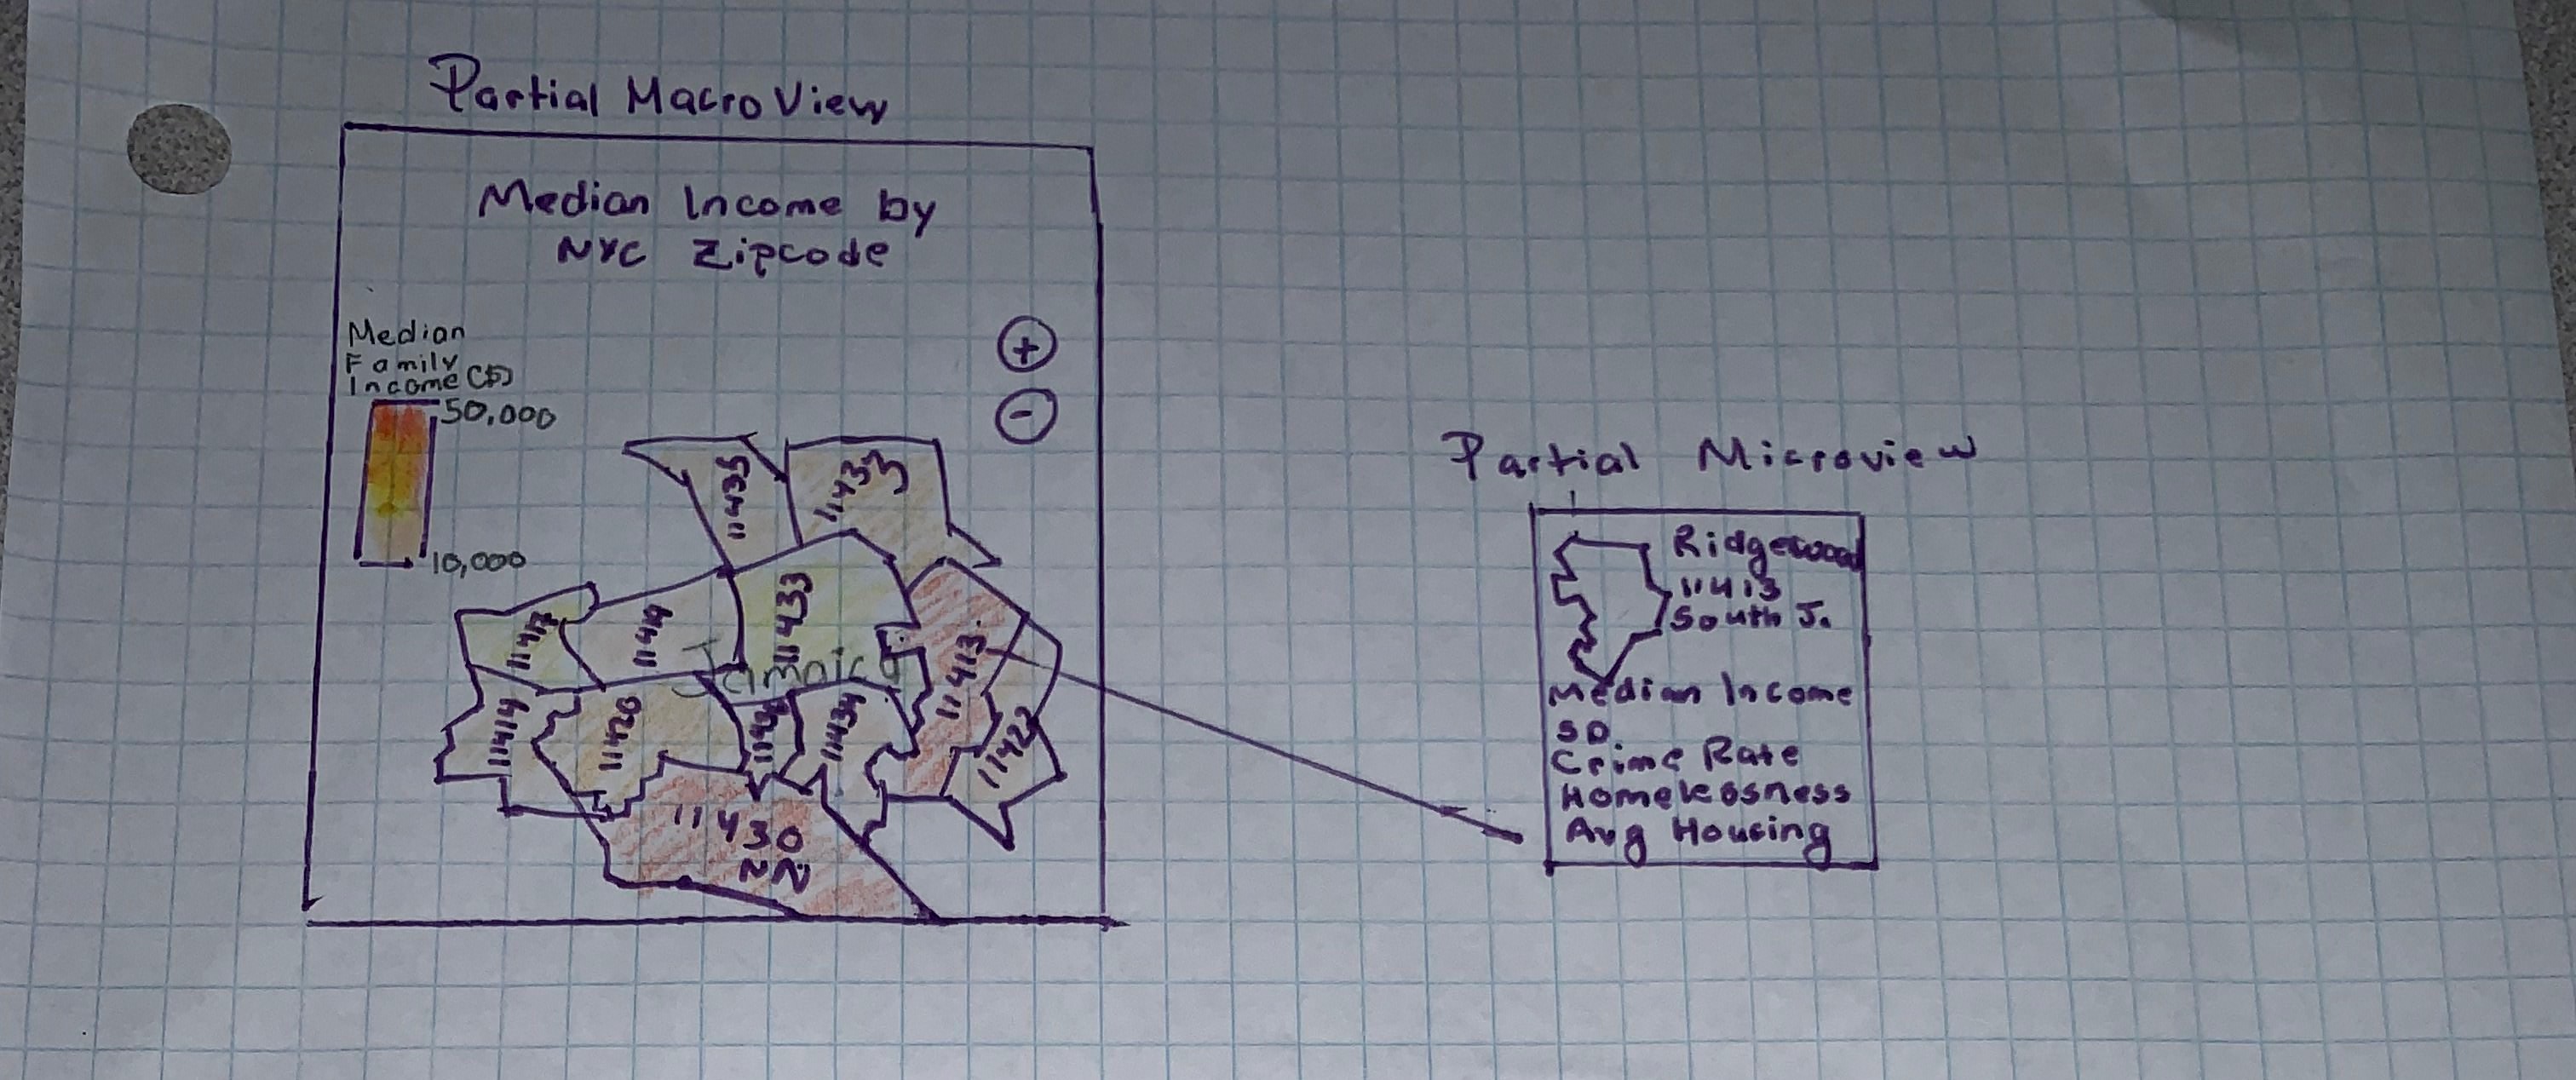 Partial Macro View
Median Income by
NYC Zipcode
Median
Family
Income ($)
50,000
10,000
+
-
11435
11433
11417
11419
11433
Jamaica
11413
11414
11420
11436
11434
11422
11430
NN
Partial Microview
Ridgewood
11413
South J.
Median Income
SD
Crime Rate
Homelessness
Avg Housing